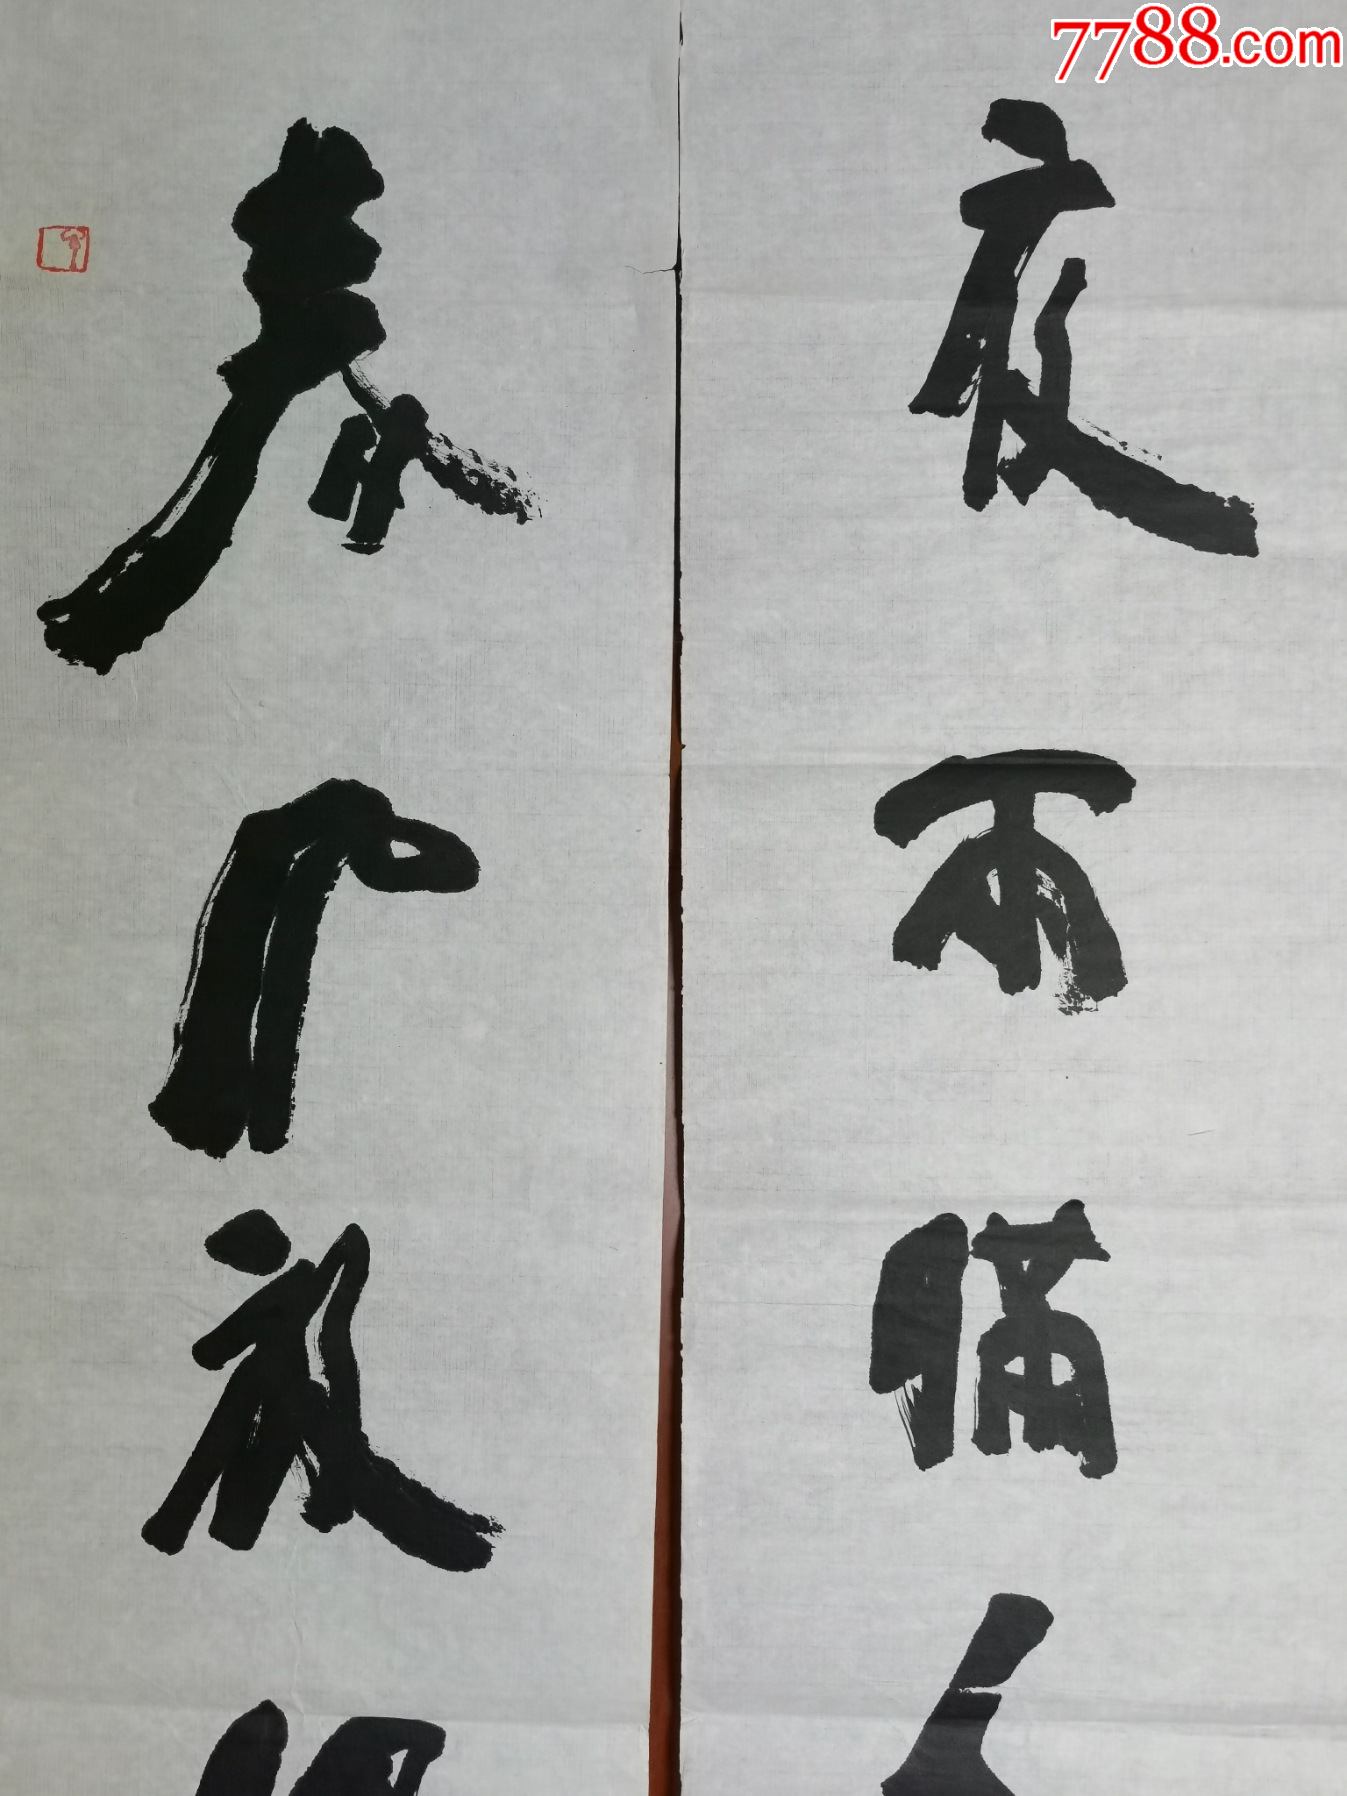 7788.com
夜雨瞒人
春风放胆